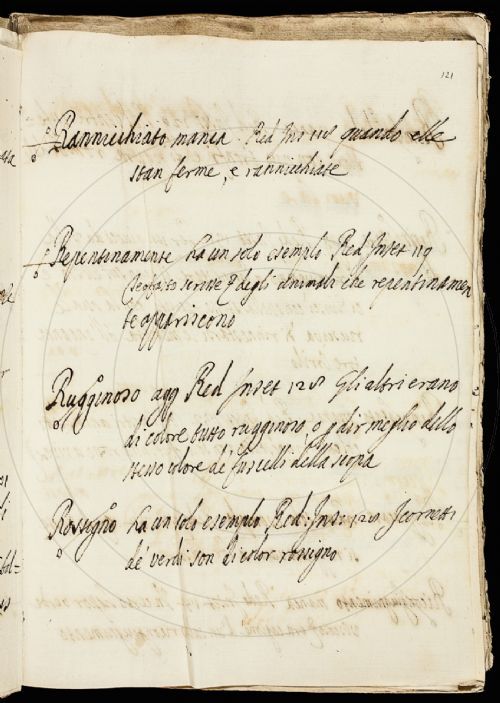 121
Rannicchiato manca. Red Ins 118 quando elle
stan ferme, e rannicchiate
Repentinamente ha un solo esempio Red Inset 119
scrisse degli animali che repentinamen
te appariscono
Rugginoso agg Red Inset 128 Gli altri erano
di colore tutto rugginoso, o p dir meglio dello
stesso colore de' fuscelli della scopa
Rossigno ha un solo esempio Red: Ins: 128 I cornetti
de' verdi son di color rossigno